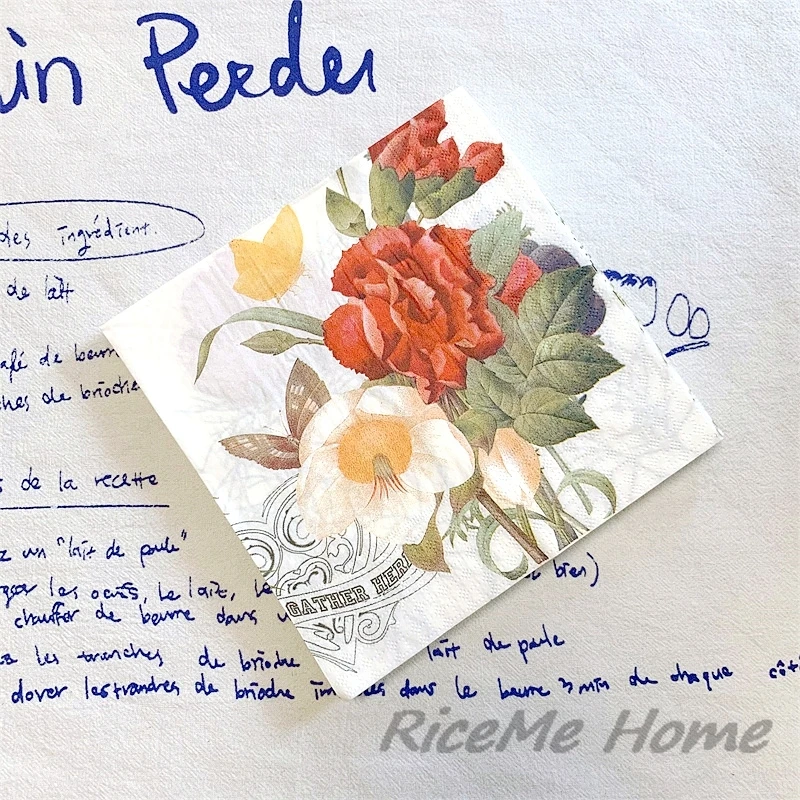 in Perdu
des ingrédient.
de lait
café de beurre
ches de brioche
s de la recette
z un "lait de poule"
les oeufs, le lait, le bien)
chauffer de beurre dans
les tranches de brioche lait de poule
dorer les tranches de brioche dans le beurre 3 min de chaque côté
GATHER HER
RiceMe Home